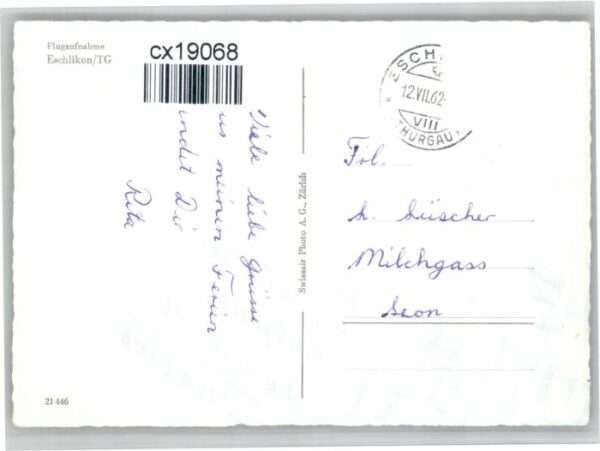 Flugaufnahme
Eschlikon/TG
cx19068
Viele liebe Grüsse
us meinen Ferien
endet Dir
Rita
Swissair Photo A. G., Zürich
ESCH
12.VII.62
VIII
HURGAU
Frl.
h. Lüscher
Milchgass
Seon
21 446